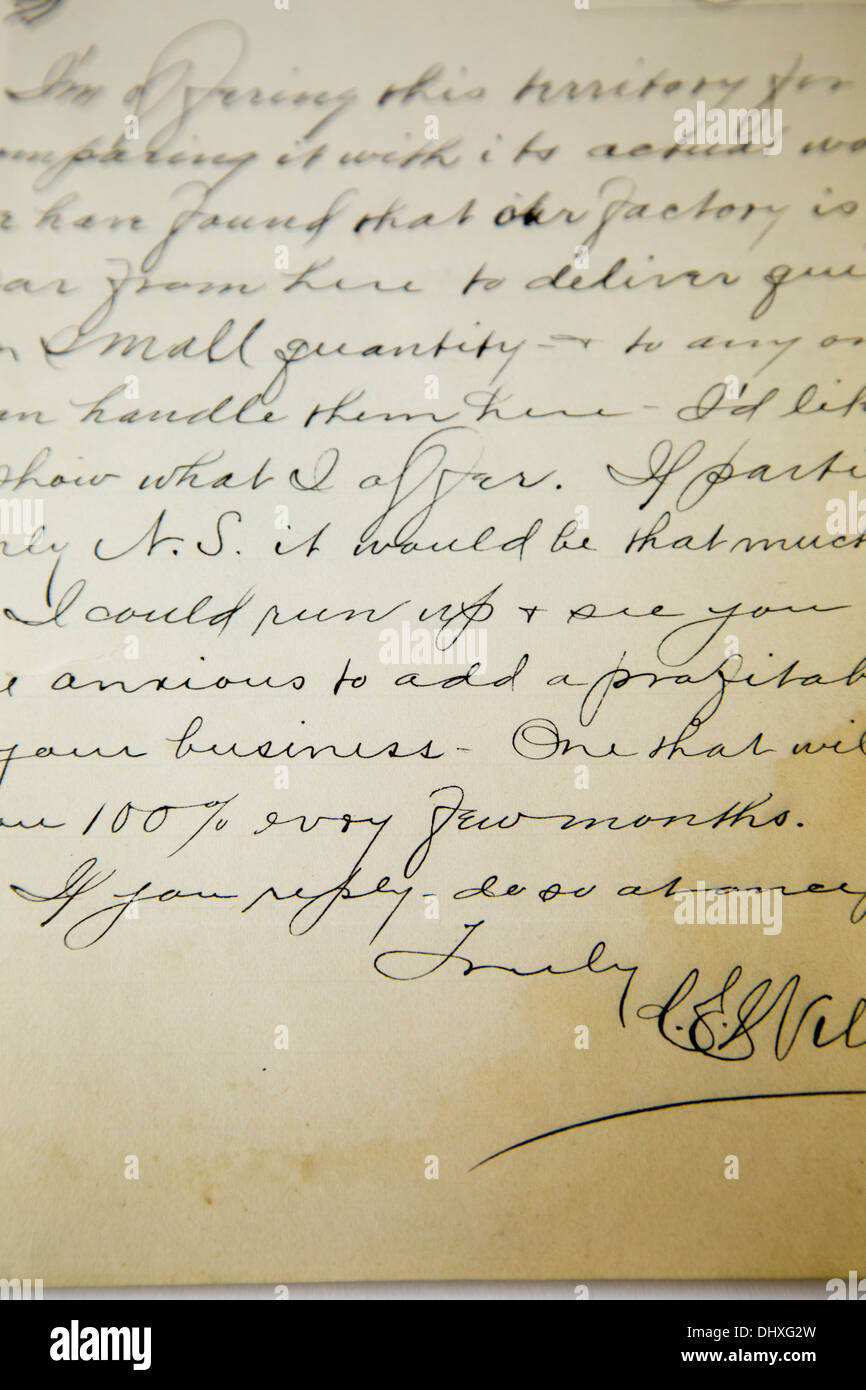 I'm offering this territory for
omparing it with its actual wo
have found that our factory is
ar from here to deliver que
n small quantity - + to any on
an handle them here - I'd lik
show what I offer. If parti
rly N.S. it would be that much
I could run up + see you
e anxious to add a profitab
your business - One that wil
ou 100% evry few months.
If you reply - do so at once,
Truly
alamy
Image ID: DHXG2W
www.alamy.com